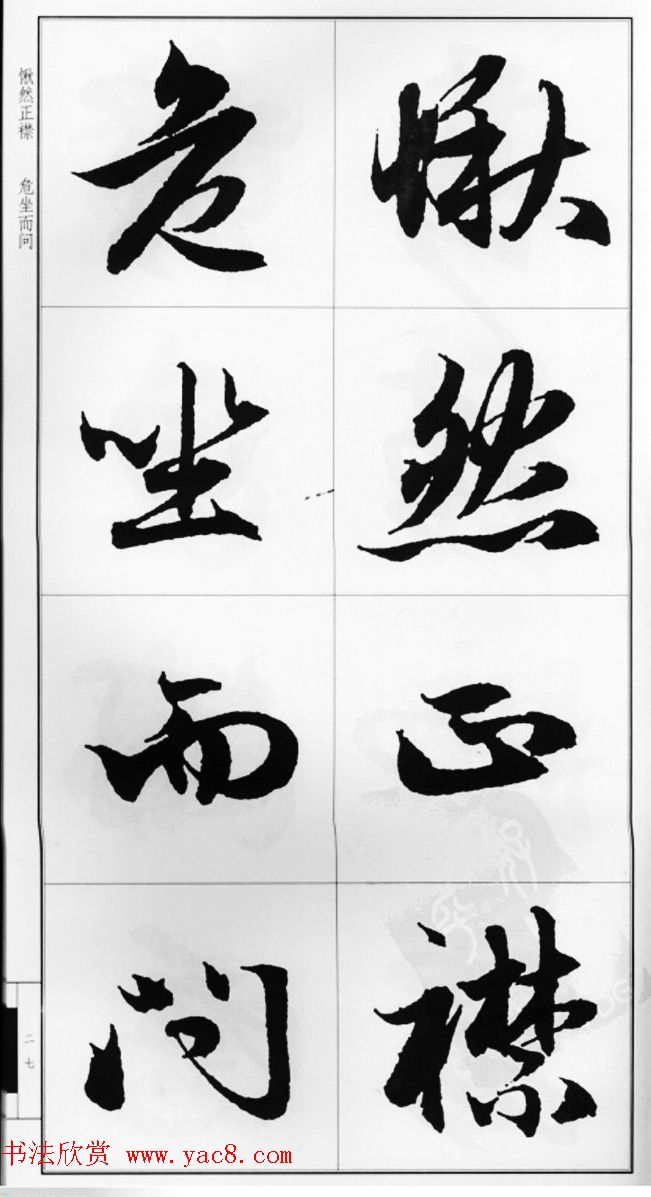 愀然正襟
危坐而问
愀然正襟 危坐而问
二七
书法欣赏 www.yac8.com